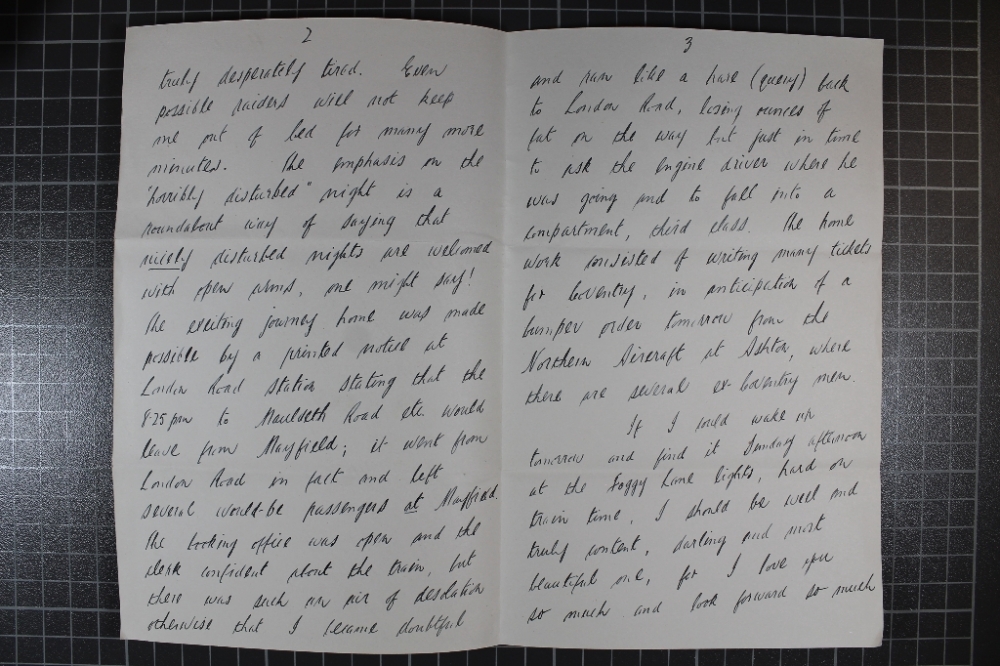 2
truly desperately tired. Even
possible raiders will not keep
me out of bed for many more
minutes. The emphasis on the
"horribly disturbed" night is a
roundabout way of saying that
nicely disturbed nights are welcomed
with open arms, one might say!
The exciting journey home was made
possible by a printed notice at
London Road Station stating that the
8.25 pm to Mauldeth Road etc. would
leave from Mayfield; it went from
London Road in fact and left
several would-be passengers at Mayfield.
The booking office was open and the
clerk confident about the train, but
there was such an air of desolation
otherwise that I became doubtful
3
and ran like a hare (query) back
to London Road, losing ounces of
fat on the way but just in time
to ask the engine driver where he
was going and to fall into a
compartment, third class. The home
work consisted of writing many tickets
for Coventry, in anticipation of a
bumper order tomorrow from the
Northern Aircraft at Ashton, where
there are several ex-Coventry men.
If I could wake up
tomorrow and find it Sunday afternoon
at the Foggy Lane lights, hard on
train time, I should be well and
truly content, darling and most
beautiful one, for I love you
so much and look forward so much